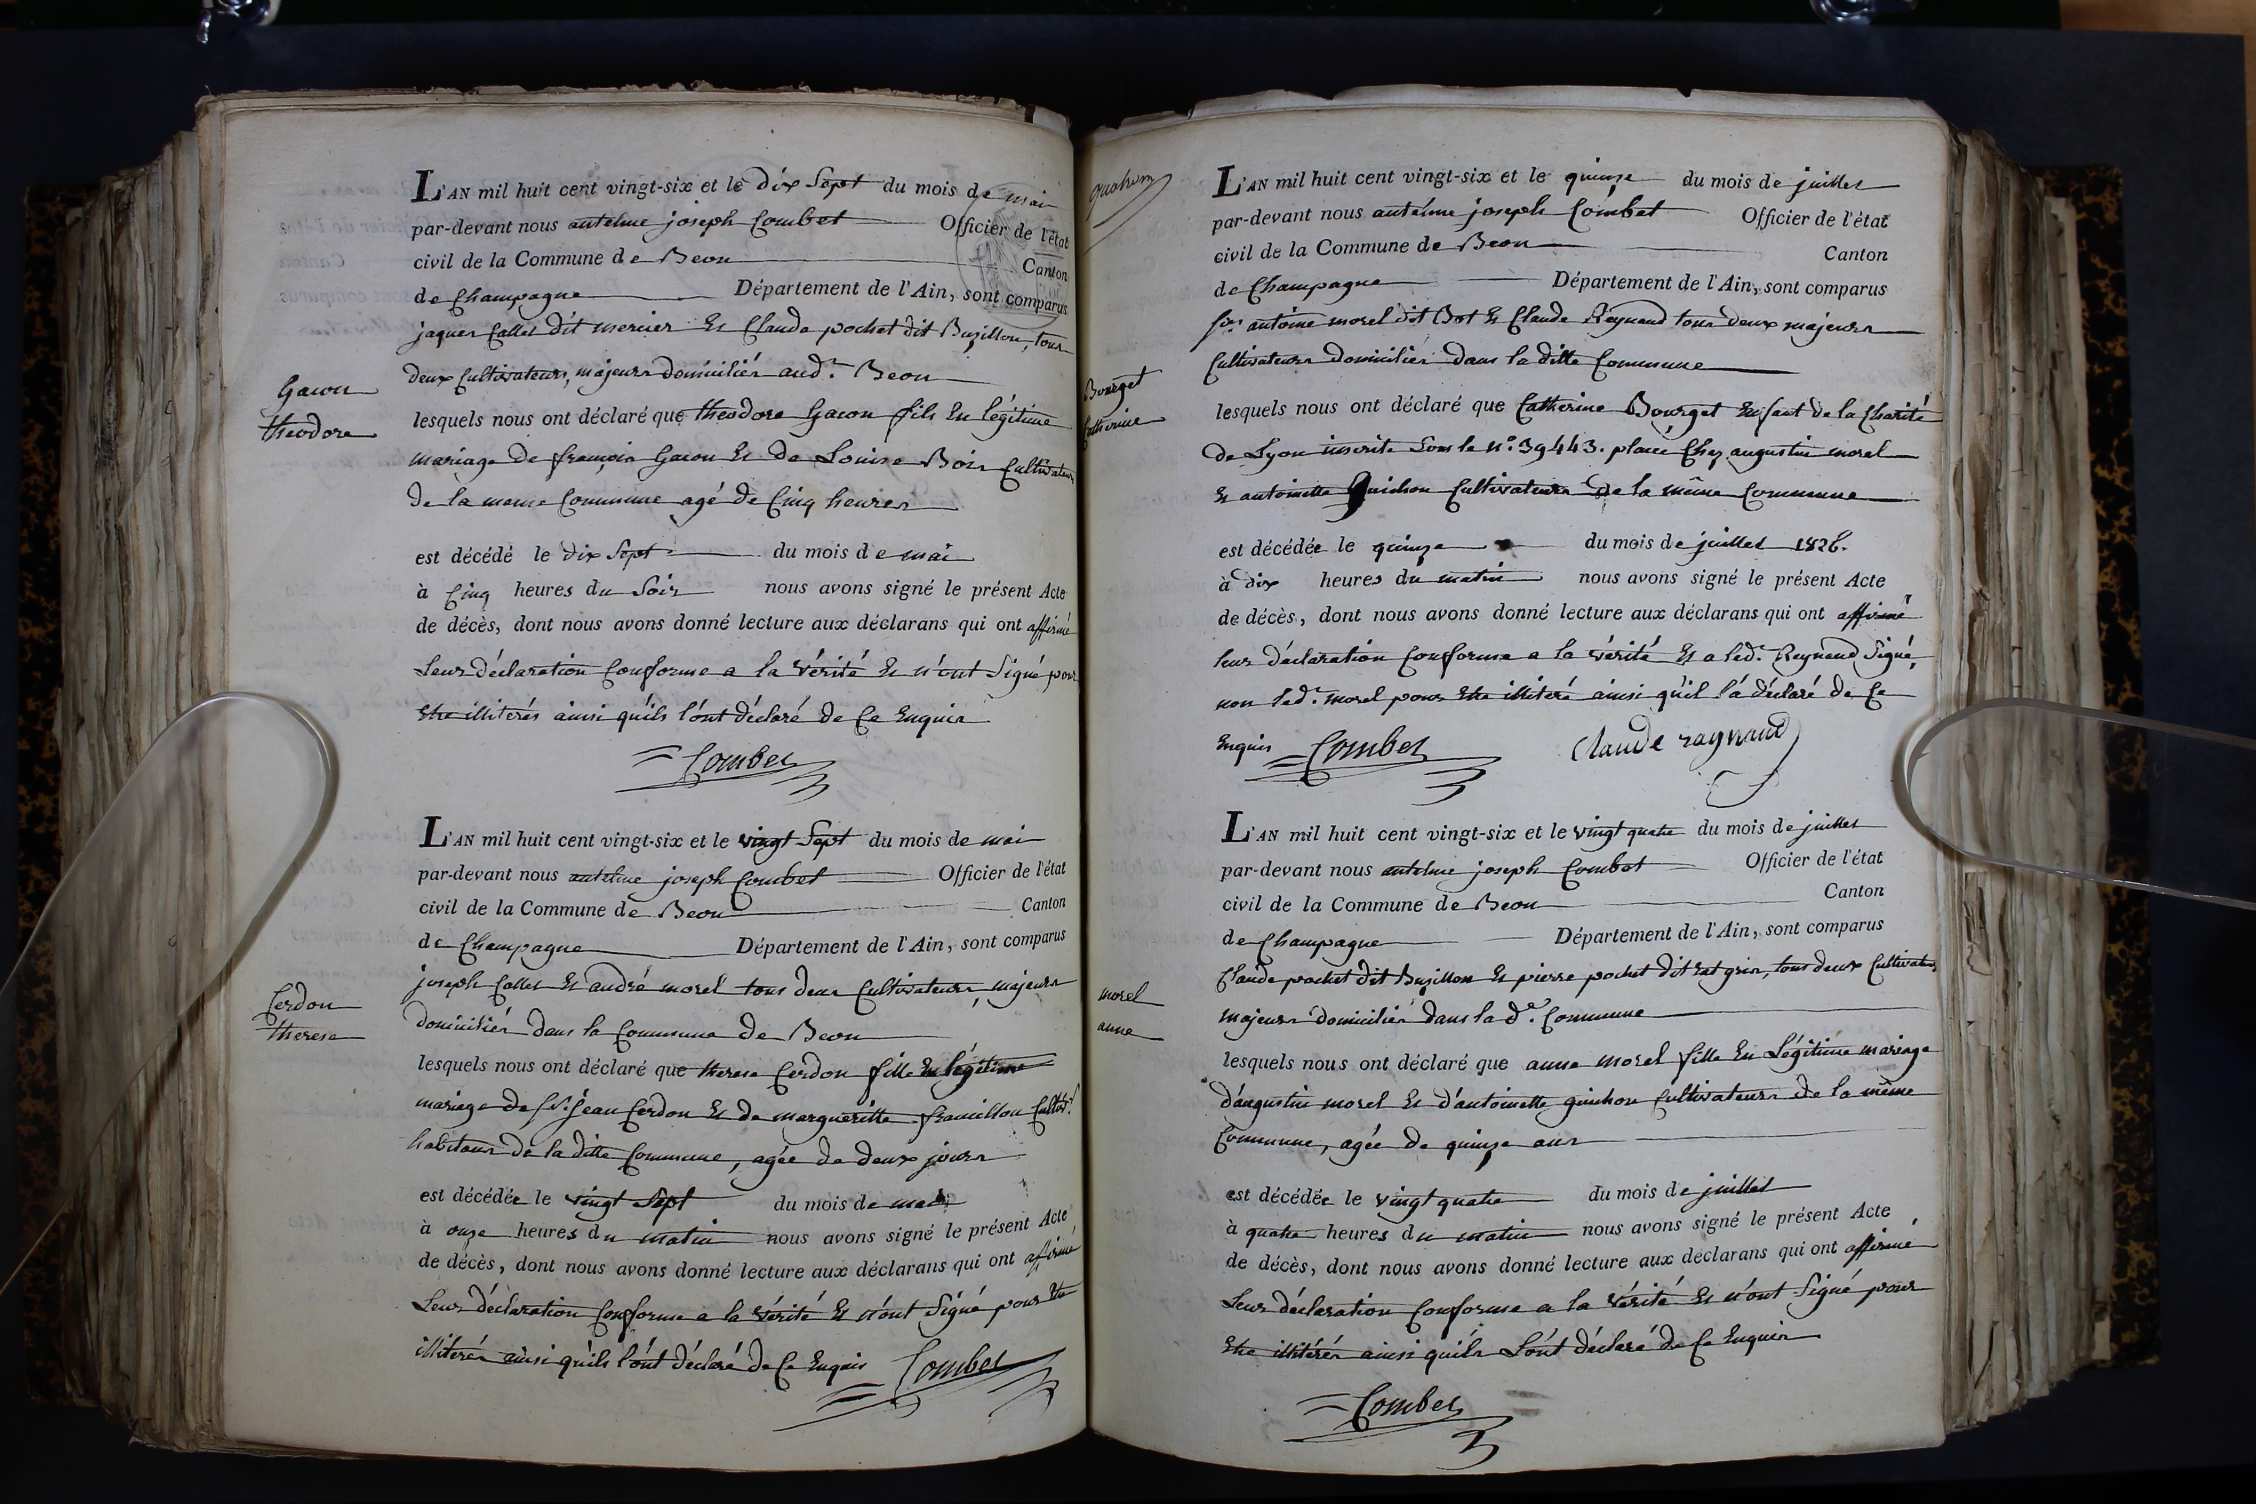 L'AN mil huit cent vingt-six et le dix Sept du mois de mai
par-devant nous antelme joseph Combet Officier de l'état
civil de la Commune de Beon Canton
de Champagne Département de l'Ain, sont comparus
jaques Callet dit mercier Et Claude pochet dit Buzillon, tous
deux Cultivateurs, majeurs domiciliés aud.t Beon
Gacon
theodore
lesquels nous ont déclaré que theodore Gacon fils En légitime
mariage de françois Gacon Et de Louise Bois Cultivateurs
de la meme Commune agé de Cinq heures
est décédé le dix Sept du mois de mai
à Cinq heures du Soir nous avons signé le présent Acte
de décès, dont nous avons donné lecture aux déclarans qui ont affirmé
Leur déclaration Conforme a la Vérité Et n'ont Signé pour
Etre illiterés ainsi qu'ils l'ónt déclaré de Ce Enquis
Combet
L'AN mil huit cent vingt-six et le vingt Sept du mois de mai
par-devant nous antelme joseph Combet Officier de l'état
civil de la Commune de Beon Canton
de Champagne Département de l'Ain, sont comparus
joseph Callet Et andré morel tous deux Cultivateurs, majeurs
domiciliés dans la Commune de Beon
Cerdon
therese
lesquels nous ont déclaré que therese Cerdon fille En légitime
mariage de Sr. jean Cerdon Et de margueritte fraivillon Cultivr.
habitans de la ditte Commune, agée de deux jours
est décédée le vingt Sept du mois de mai
à onze heures du matin nous avons signé le présent Acte
de décès, dont nous avons donné lecture aux déclarans qui ont affirmé
Leur déclaration Conforme a la Vérité Et n'ont Signé pour Etre
illiterés ainsi qu'ils l'ónt déclaré de Ce Enquis Combet
L'AN mil huit cent vingt-six et le quinze du mois de juillet
par-devant nous antelme joseph Combet Officier de l'état
civil de la Commune de Beon Canton
de Champagne Département de l'Ain, sont comparus
Srs antoine morel dit Bot Et Claude Reynaud tous deux majeurs
Cultivateurs domiciliés dans la ditte Commune
Bourget
Catherine
lesquels nous ont déclaré que Catherine Bourget Enfant de la Charité
de Lyon inscrite Sous le n.o 39443. placée Chez augustin morel
Et antoinette Guichon Cultivateurs de la même Commune
est décédée le quinze du mois de juillet 1826.
à dix heures du matin nous avons signé le présent Acte
de décès, dont nous avons donné lecture aux déclarans qui ont affirmé
leur déclaration Conforme a la vérité Et a led.t Reynaud Signé,
non led.t morel pour Etre illiteré ainsi qu'il l'á déclaré de Ce
Enquis Combet Claude raynaud
L'AN mil huit cent vingt-six et le vingt quatre du mois de juillet
par-devant nous antelme joseph Combet Officier de l'état
civil de la Commune de Beon Canton
de Champagne Département de l'Ain, sont comparus
Claude pochet dit Buzillon Et pierre pochet dit ratgris, tous deux Cultivateurs
majeurs domiciliés dans la d.e Commune
morel
anne
lesquels nous ont déclaré que anne morel fille En Légitime mariage
d'augustin morel Et d'antoinette guichon Cultivateurs de la même
Commune, agée de quinze ans
est décédée le vingt quatre du mois de juillet
à quatre heures du matin nous avons signé le présent Acte
de décès, dont nous avons donné lecture aux déclarans qui ont affirmé
Leur déclaration Conforme a la Vérité Et n'ont Signé pour
Etre illitérés ainsi qu'ils L'ónt déclaré de Ce Enquis
Combet